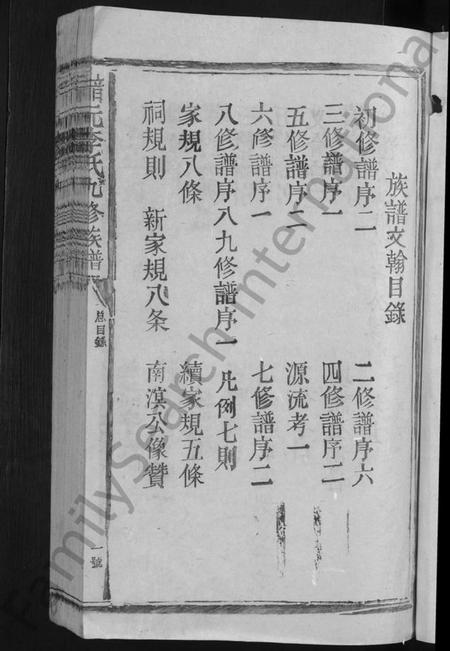 族譜文翰目錄
初修譜序二 二修譜序六
三修譜序一 四修譜序二
五修譜序二 源流考一
六修譜序一 七修譜序二
八修譜序八九修譜序一 凡例七則
家規八條 續家規五條
祠規則 新家規八条 南溟公像贊
李氏九修族譜
總目錄
一號
FamilySearch International